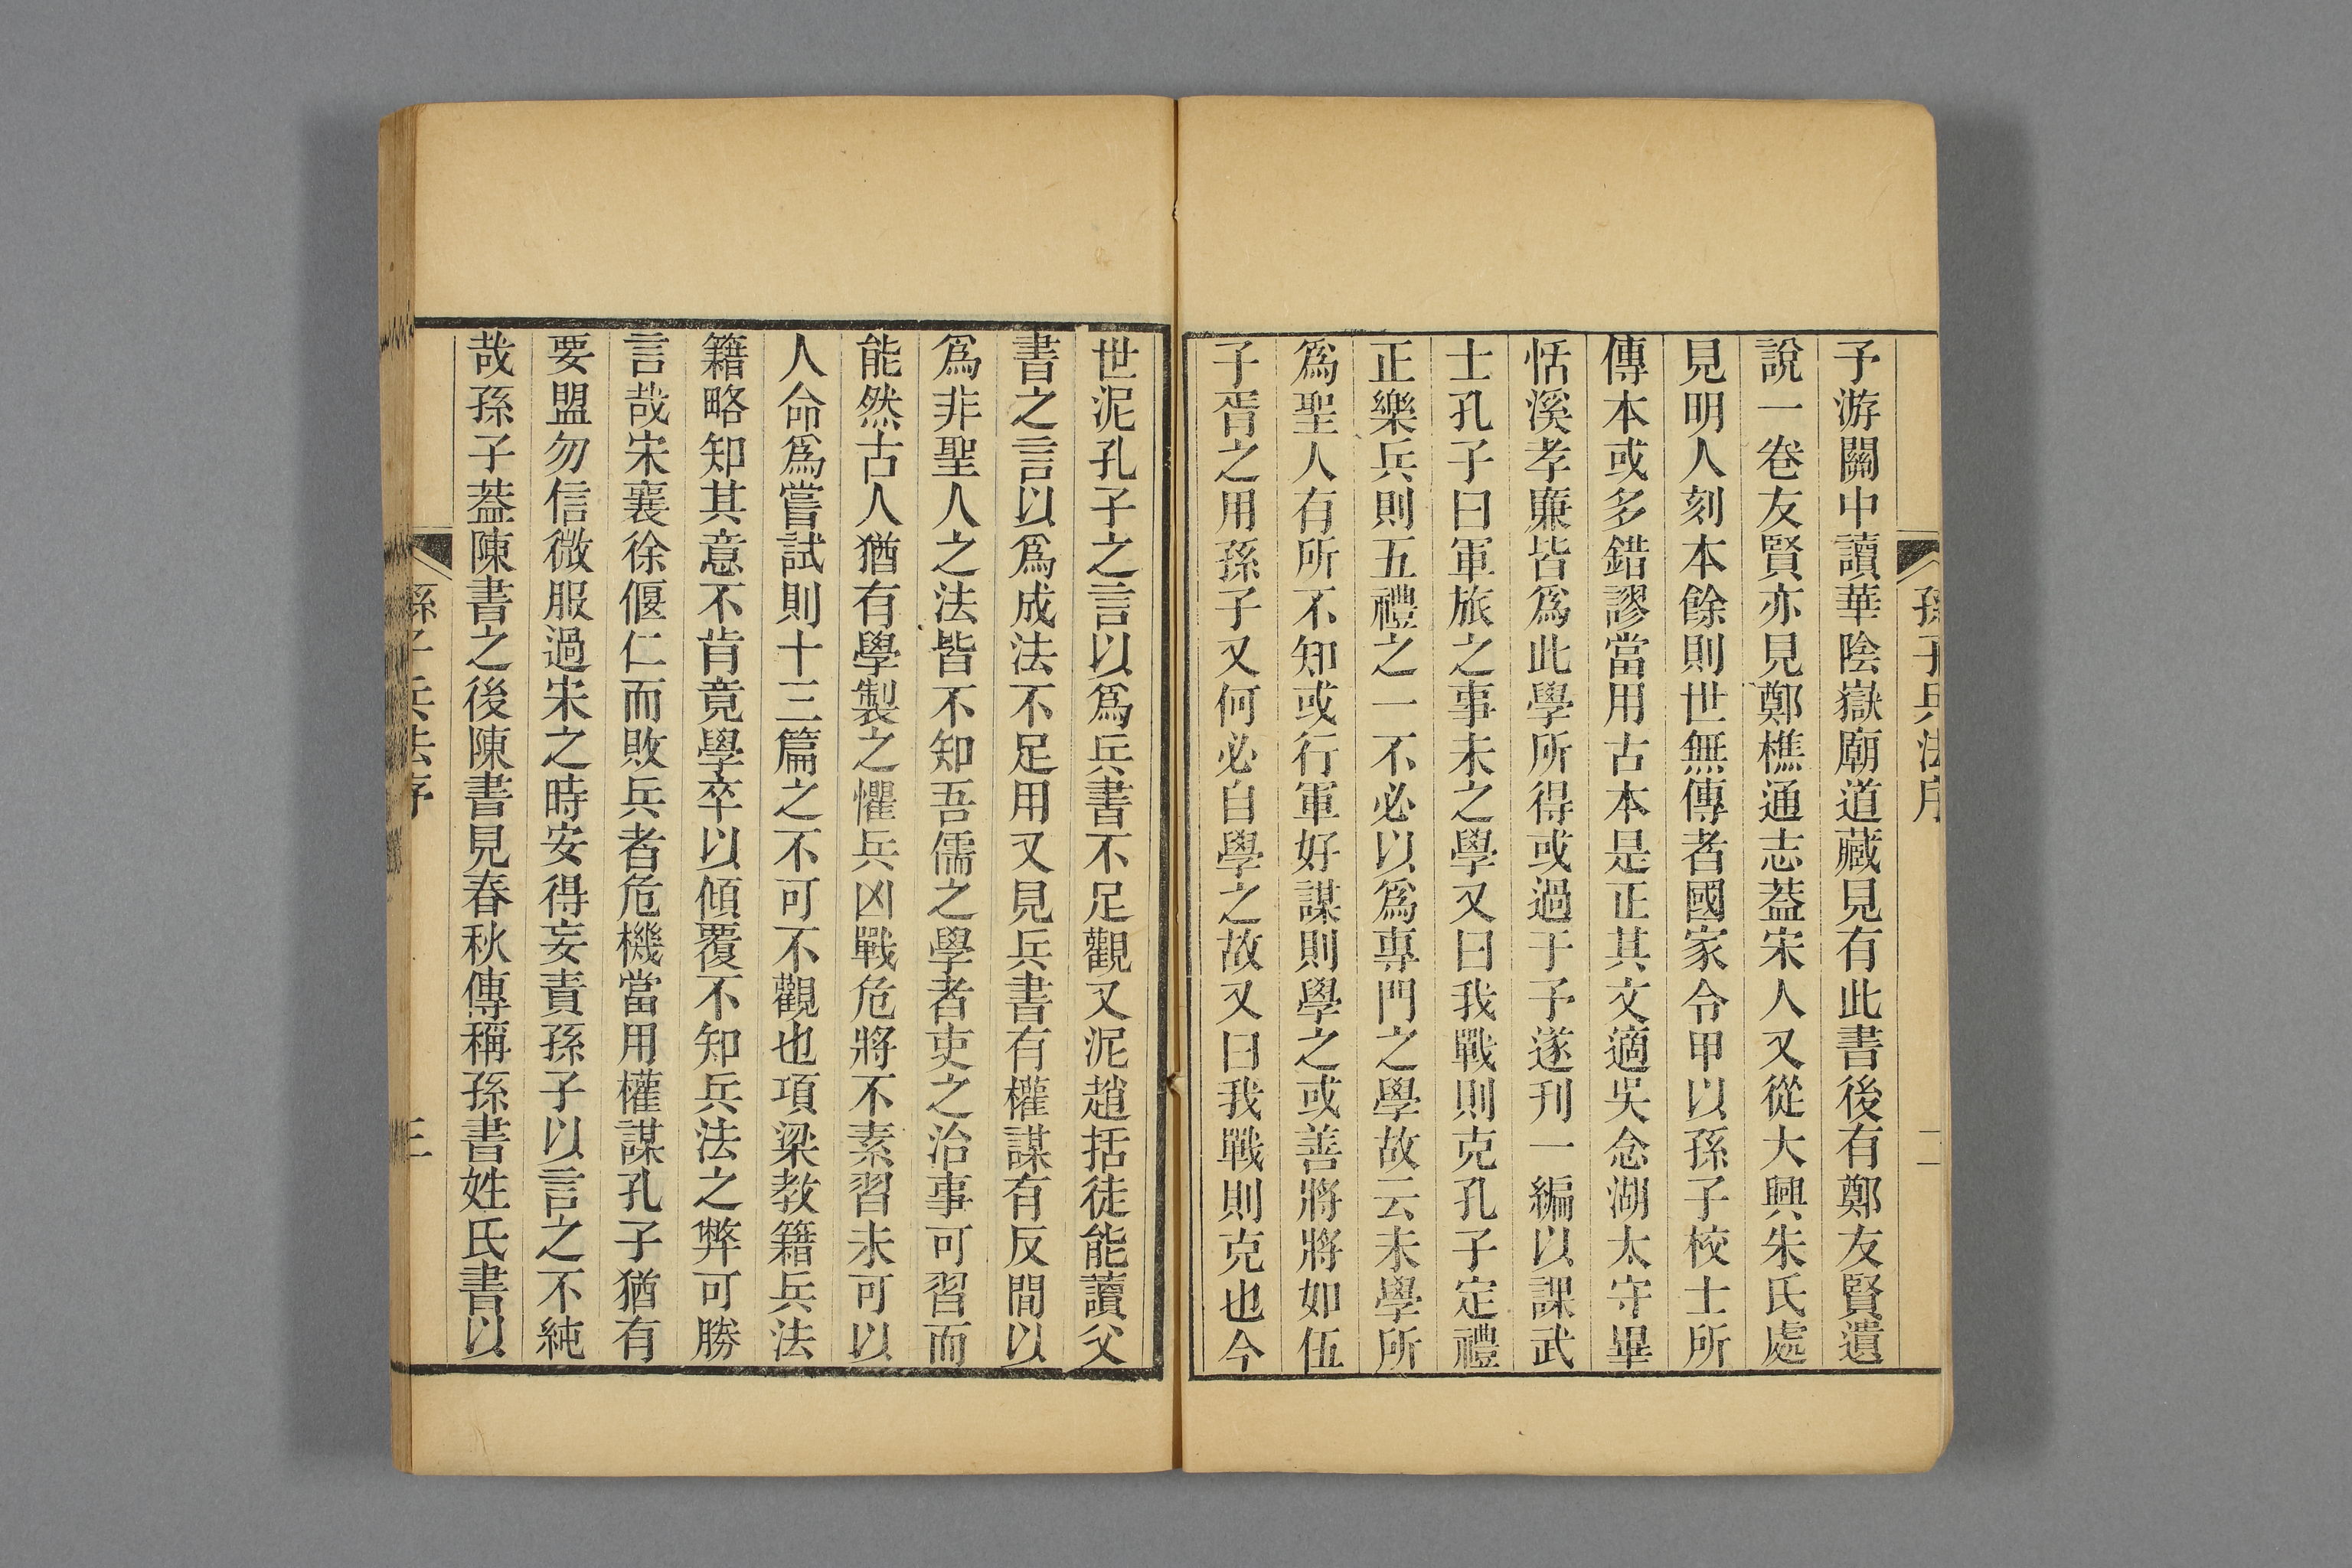 孫子兵法序
二
予游關中讀華陰嶽廟道藏見有此書後有鄭友賢遺
說一卷友賢亦見鄭樵通志葢宋人又從大興朱氏處
見明人刻本餘則世無傳者國家令甲以孫子校士所
傳本或多錯謬當用古本是正其文適吳念湖太守畢
恬溪孝廉皆爲此學所得或過于予遂刊一編以課武
士孔子曰軍旅之事未之學又曰我戰則克孔子定禮
正樂兵則五禮之一不必以爲專門之學故云未學所
爲聖人有所不知或行軍好謀則學之或善將將如伍
子胥之用孫子又何必自學之故又曰我戰則克也今
世泥孔子之言以爲兵書不足觀又泥趙括徒能讀父
書之言以爲成法不足用又見兵書有權謀有反間以
爲非聖人之法皆不知吾儒之學者吏之治事可習而
能然古人猶有學製之懼兵凶戰危將不素習未可以
人命爲嘗試則十三篇之不可不觀也項梁教籍兵法
籍略知其意不肯竟學卒以傾覆不知兵法之弊可勝
言哉宋襄徐偃仁而敗兵者危機當用權謀孔子猶有
要盟勿信微服過宋之時安得妄責孫子以言之不純
哉孫子葢陳書之後陳書見春秋傳稱孫書姓氏書以
孫子兵法序
三